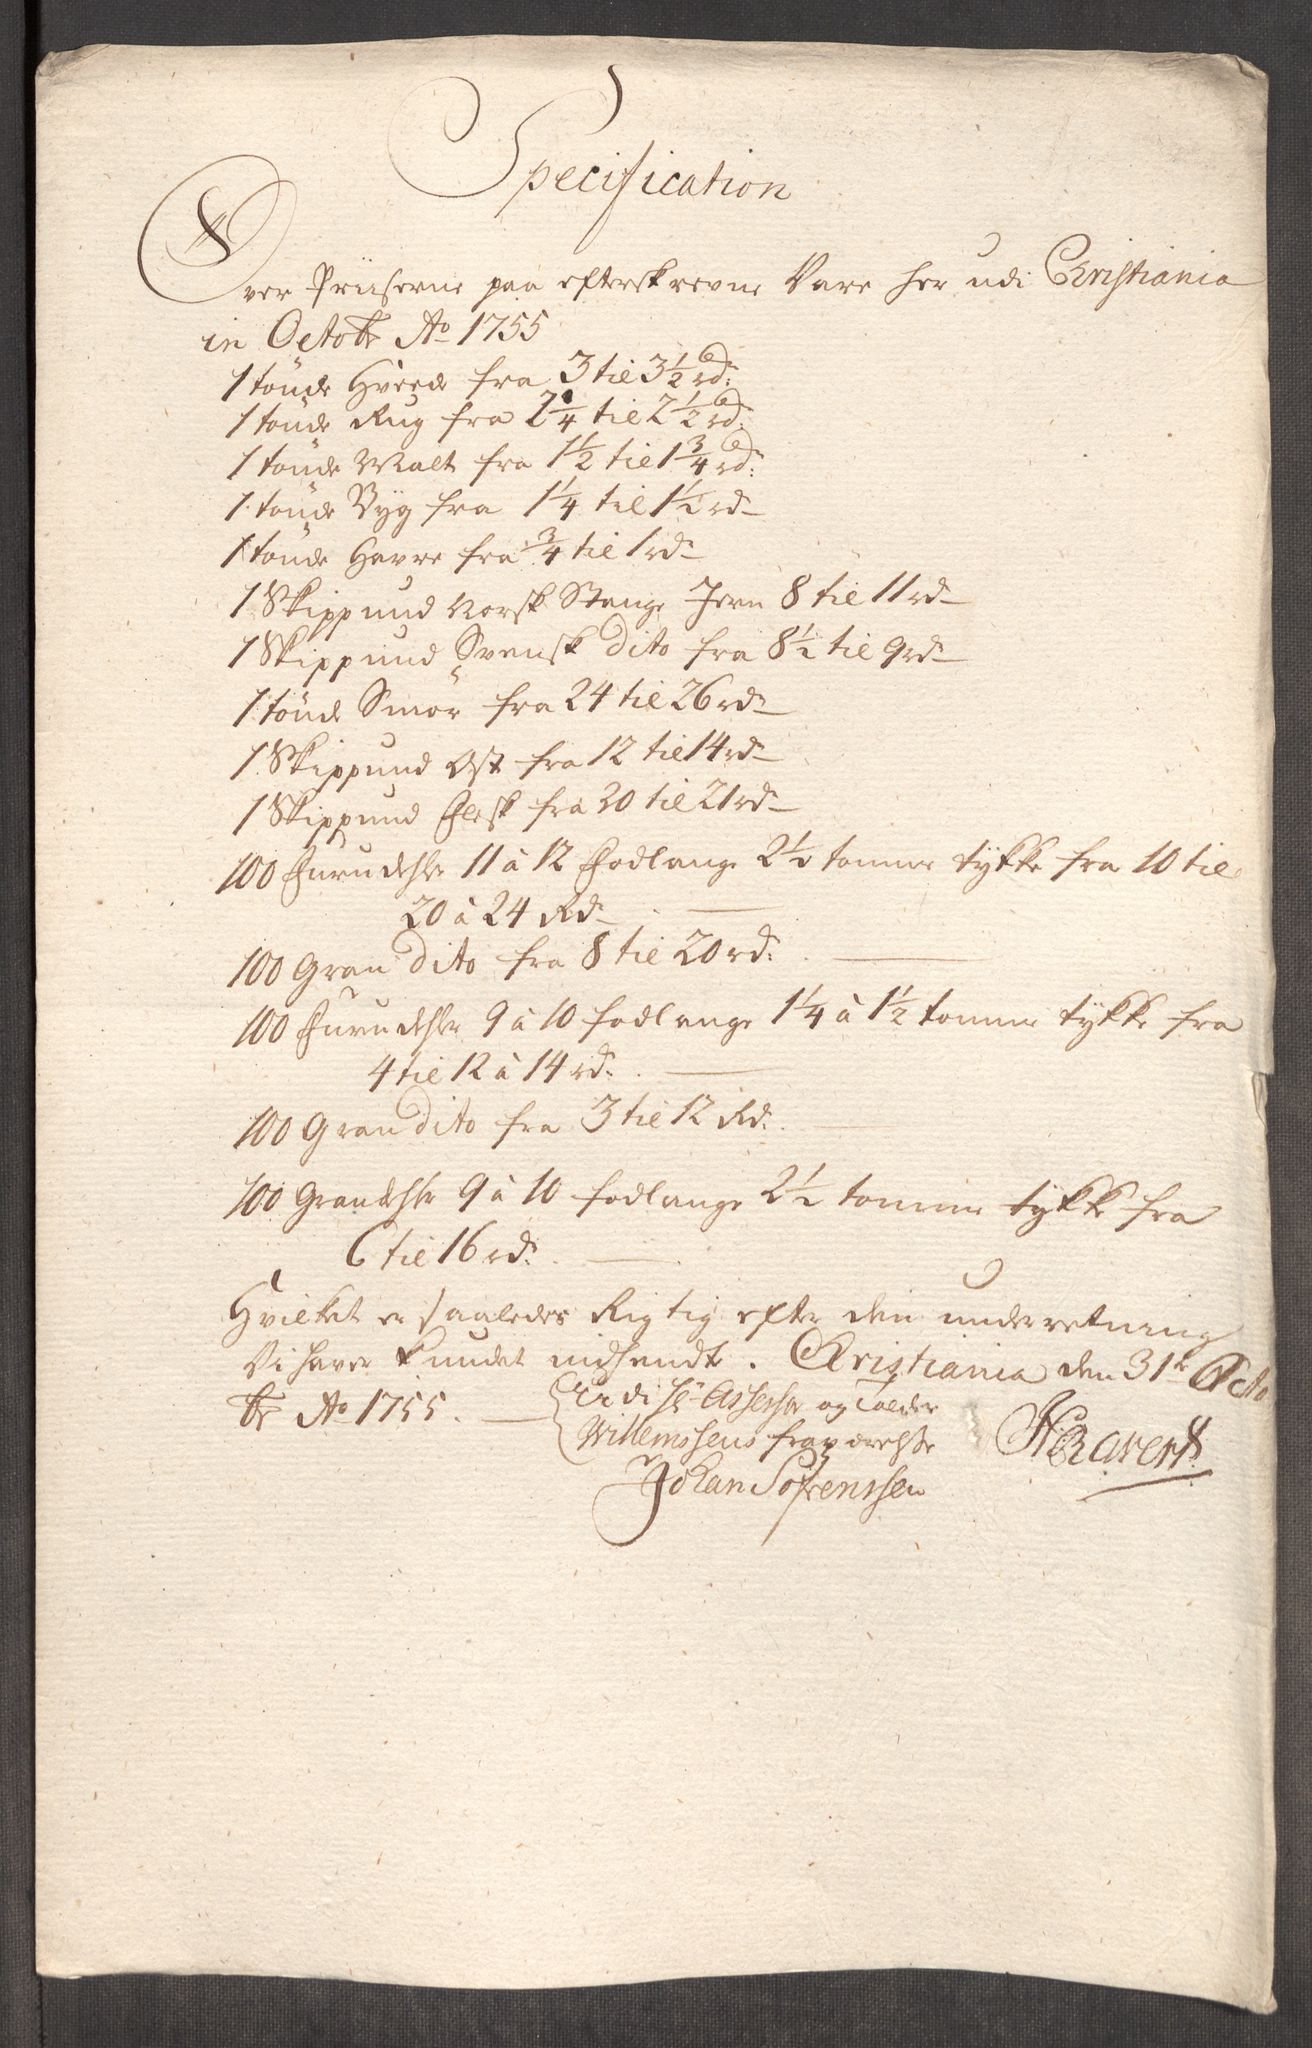 Specification
Over Priiserne paa efterskrevne Vare her udi Christiania
in Octobr Ao 1755
1 tönde Hveede fra 3 til 3 1/2 rd:
1 tönde Rug fra 2 1/4 til 2 1/2 rd:
1 tönde Malt fra 1 1/2 til 1 3/4 rd:
1 tönde Byg fra 1 1/4 til 1 1/2 rd
1 tönde Havre fra 3/4 til 1 rd
1 Skippund Norsk Stange Jern 8 til 11 rd
1 Skippund Svensk dito fra 8 1/2 til 9 rd
1 tönde Smör fra 24 til 26 rd
1 Skippund Ost fra 12 til 14 rd
1 Skippund Flesk fra 20 til 21 rd
100 Furudehler 11 à 12 Fodlange 2 1/2 tomme tykke fra 10 til
20 à 24 Rd
100 Gran dito fra 8 til 20 rd:
100 Furudehler 9 à 10 fodlange 1 1/4 à 1 1/2 tomme tykke fra
4 til 12 à 14 rd:
100 Gran dito fra 3 til 12 Rd:
100 Grandehler 9 à 10 fodlange 2 1/2 tomme tykke fra
6 til 16 rd:
Hvilket er saaledes Rigtig efter den underretning
Vi haver kundet indhendte. Christiania den 31te Octo
br Ao 1755.
Udi Hr Assessor og Tolder
Willemssens fraværelse
Johan Sörenssen